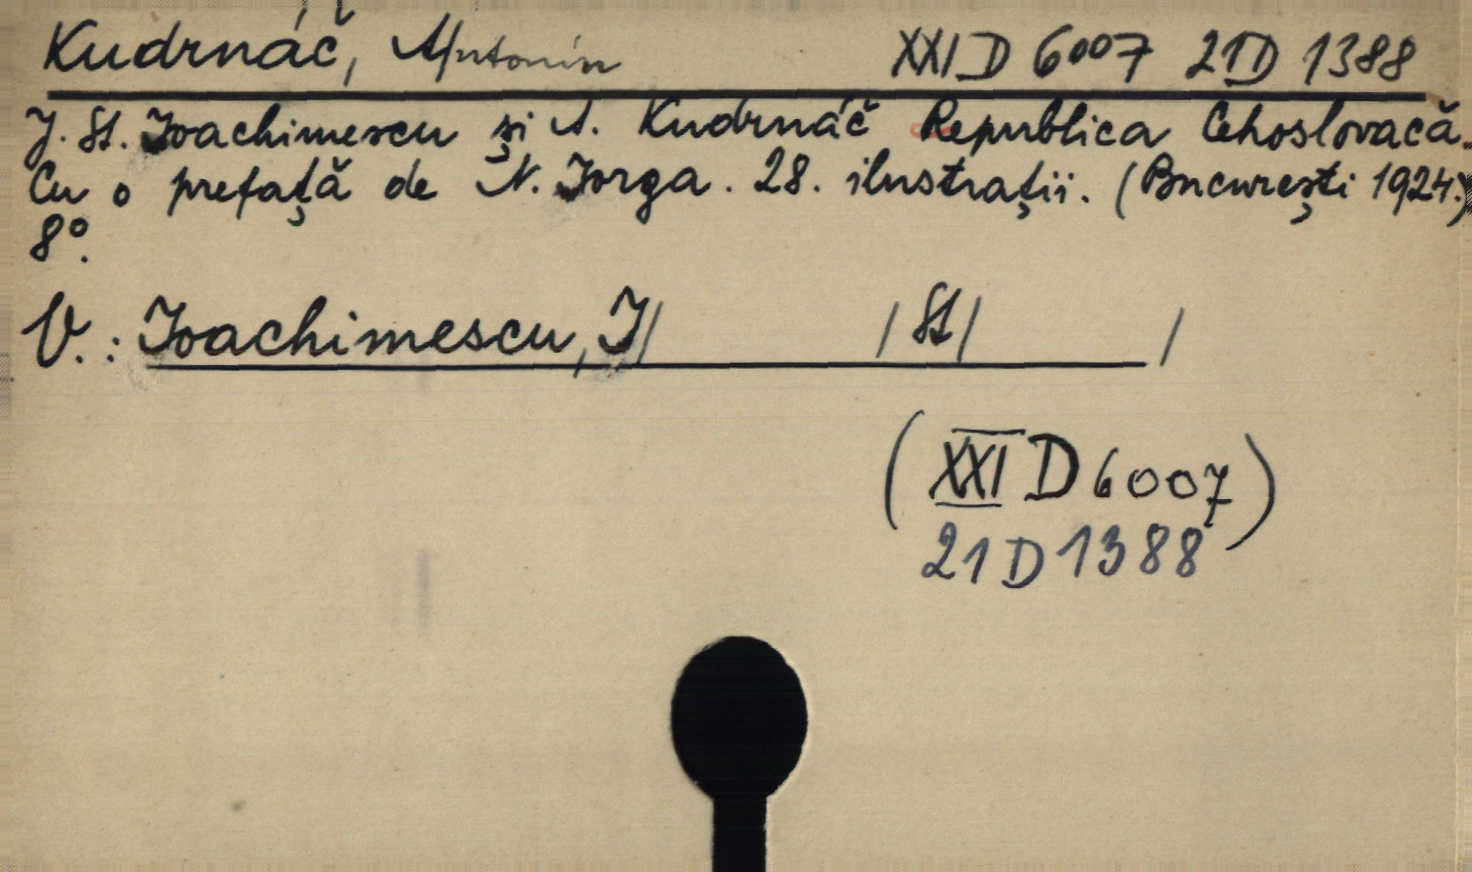 Kudrnáč, Antonín XXI D 6007 21D 1388
J. St. Ioachimescu și A. Kudrnáč Republica Cehoslovacă.
Cu o prefaţă de N. Iorga. 28. ilustraţii. (Bucureşti 1924.)
8°.
V.: Ioachimescu, J/ /St/ /
(XXI D 6007)
21 D 1388